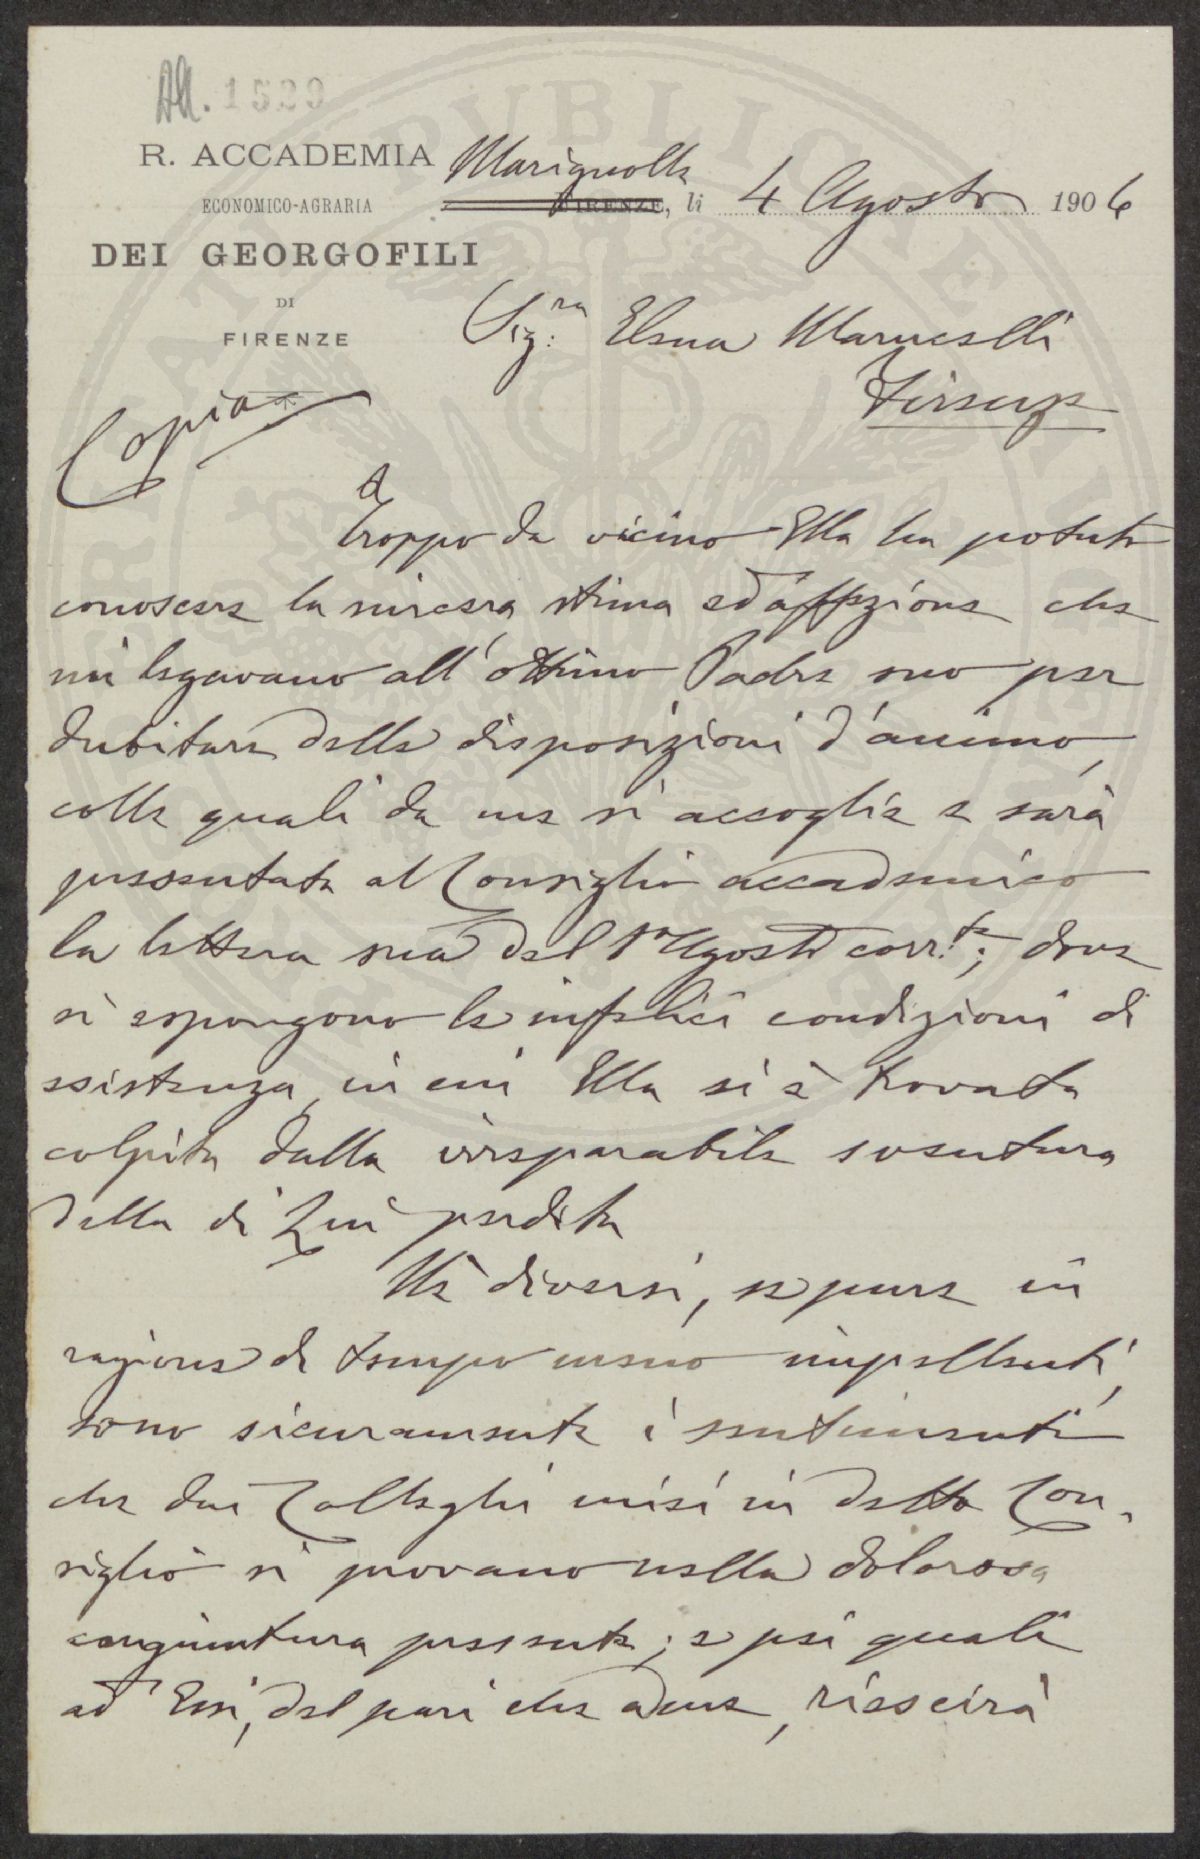 All. 1529
R. ACCADEMIA
ECONOMICO-AGRARIA
DEI GEORGOFILI
DI
FIRENZE
Marignolle
FIRENZE, li 4 Agosto 1906
Sig.ra Elena Marucelli
Firenze
Copia
Troppo da vicino Ella ha potuto
conoscere la sincera stima ed affezione che
mi legavano all'ottimo Padre suo per
dubitare delle disposizioni d'animo,
colle quali da me si accoglie e sarà
presentata al Consiglio accademico
la lettera sua del 1° Agosto corr.te; dove
si espongono le infelici condizioni di
esistenza, in cui Ella si è trovata
colpita dalla irreparabile sventura
della di Lui perdita
Nè diversi, se pure in
ragione di tempo meno impellenti,
sono sicuramente i sentimenti
che dai Colleghi miei in detto Con-
siglio si provano nella dolorosa
congiuntura presente; e pei quali
ad Essi, del pari che a me, riescirà